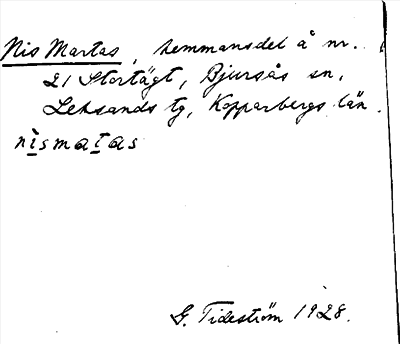 Nis Martas, hemmansdel å nr.
21 Stortägt, Bjursås sn,
Leksands tg, Kopparbergs län.
nìsmatas
G. Tideström 1928.